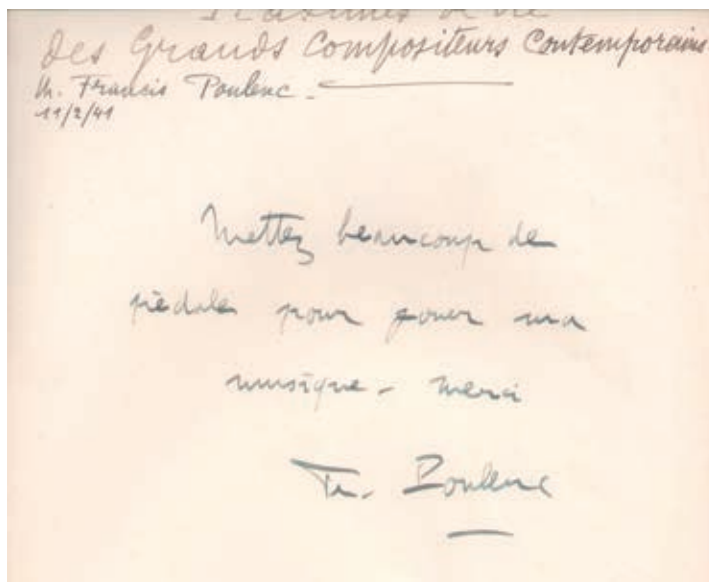 des Grands Compositeurs Contemporains
M. Francis Poulenc.
11/2/41
Mettez beaucoup de
pédales pour jouer ma
musique - merci
Fr. Poulenc